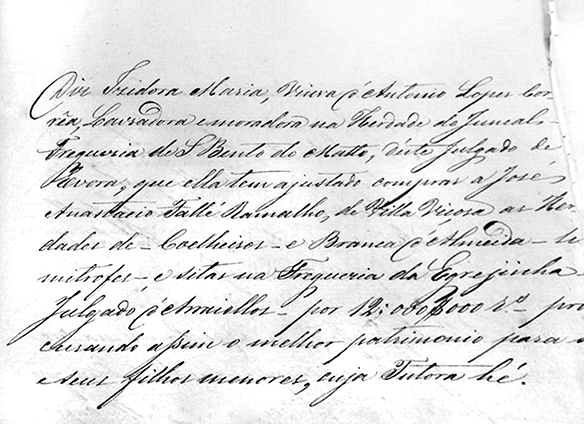 Diz Izidora Maria, Viuva d'Antonio Lopes Cor-
rêa, Lavradora e moradora na Herdade do Juncal -
Freguezia de S. Bento do Matto, deste Julgado de
Evora, que ella tem ajustado comprar a José
Anastacio Fallé Ramalho, de Villa Viçosa as Her-
dades de - Coelheiros - e Branca d'Almeida - li
mitrofes - e sitas na Freguezia da Egrejinha
Julgado d'Arraiollos - por 12:000$000 rs. - pro
curando assim o melhor patrimonio para
e seus filhos menores, cuja Tutora hé.